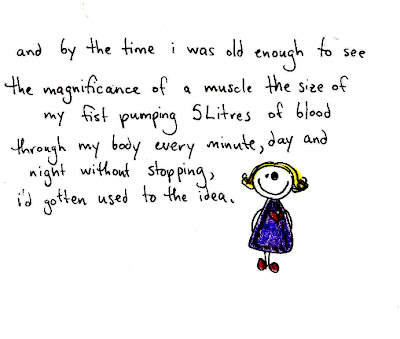 and by the time i was old enough to see
the magnificance of a muscle the size of
my fist pumping 5Litres of blood
through my body every minute, day and
night without stopping,
i'd gotten used to the idea.